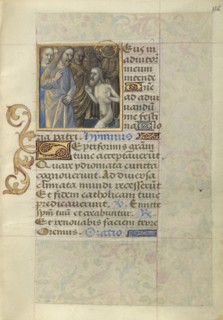 Eus in
adiutor
meum
intende
Dne
ad adiu
uandu
me festi
Glo
ria patri. hymnus
Septiformis gram
tunc acceptauerut
Quare ydiomata cuncta
cognouerunt. Ad diuersa
climata mundi recesserut
Et fidem catholicam tunc
predicauerunt. V. Emitte
spm tuu et creabuntur. R.
Et renouabis faciem terre
Oremus. Oratio